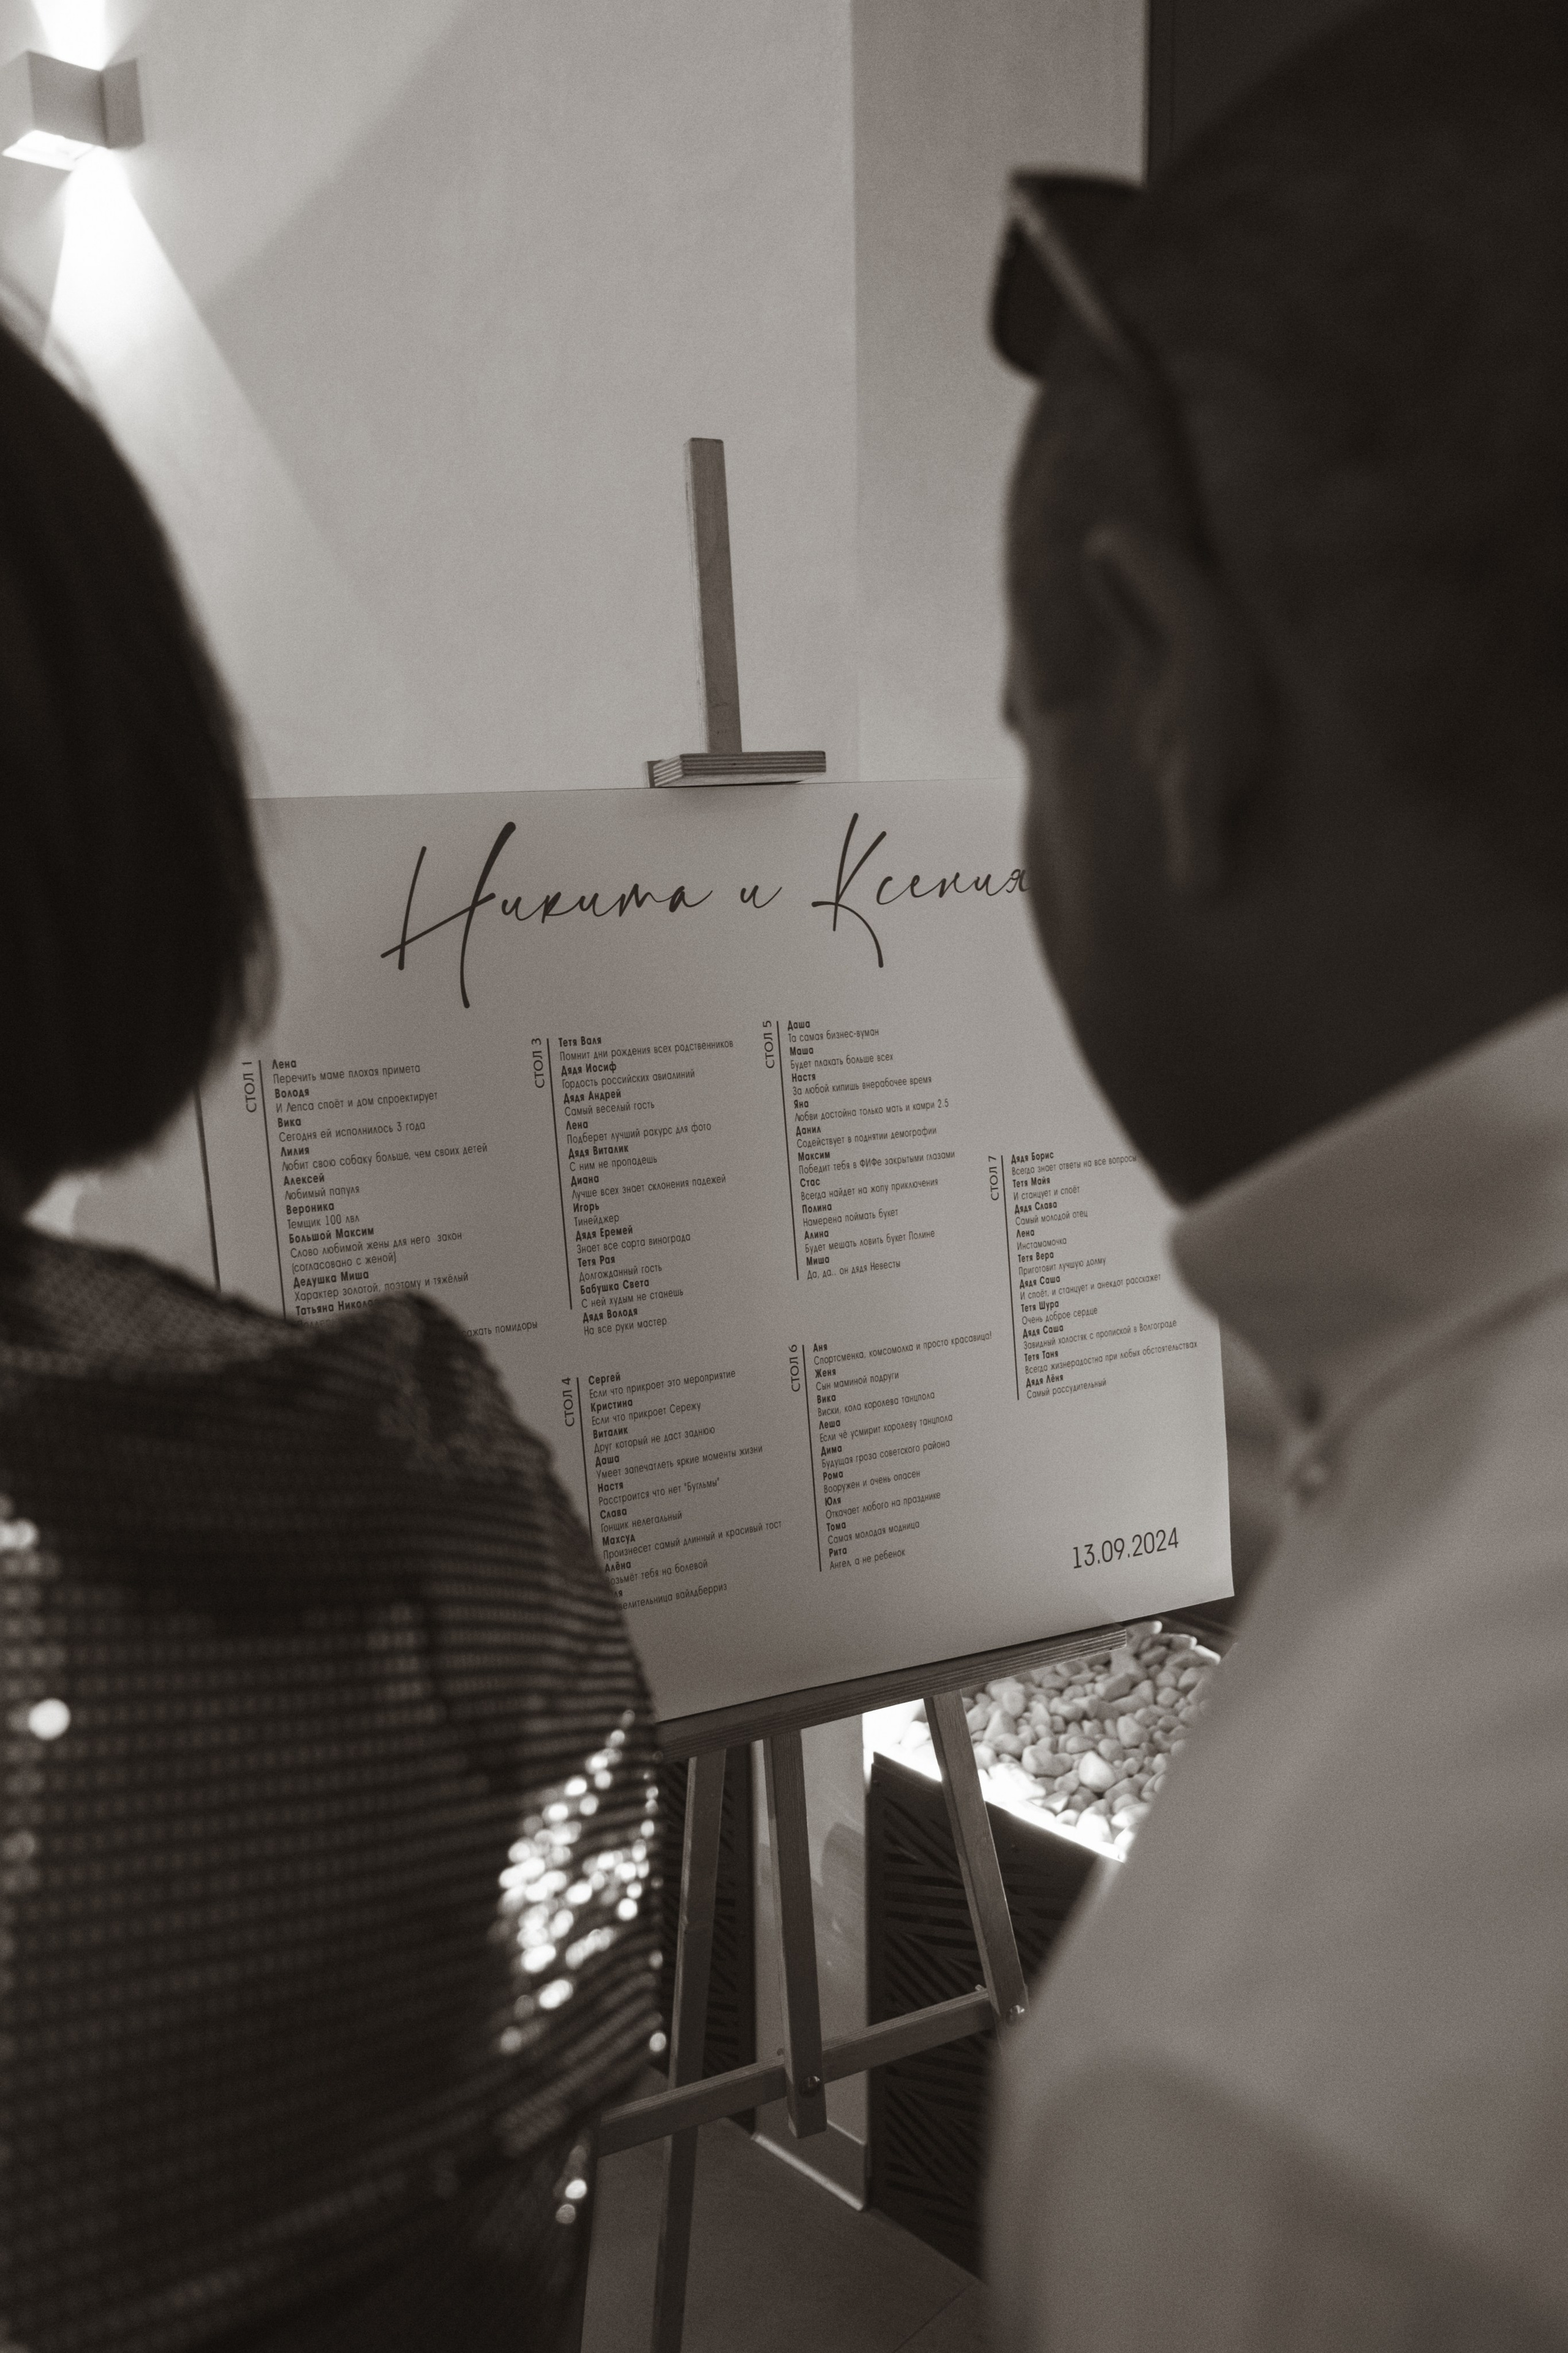 Никита и Ксения
СТОЛ 1
Лена
Перечить маме плохая примета
Володя
И Лепса споёт и дом спроектирует
Вика
Сегодня ей исполнилось 3 года
Лилия
Любит свою собаку больше, чем своих детей
Алексей
Любимый папуля
Вероника
Темщик 100 лвл
Большой Максим
Слово любимой жены для него закон
(согласовано с женой)
Дедушка Миша
Характер золотой, поэтому и тяжёлый
Татьяна
помидоры
СТОЛ 3
Тетя Валя
Помнит дни рождения всех родственников
Дядя Иосиф
Гордость российских авиалиний
Дядя Андрей
Самый веселый гость
Лена
Подберет лучший ракурс для фото
Дядя Виталик
С ним не пропадешь
Диана
Лучше всех знает склонения падежей
Игорь
Тинейджер
Дядя Еремей
Знает все сорта винограда
Тетя Рая
Долгожданный гость
Бабушка Света
С ней худым не станешь
Дядя Володя
На все руки мастер
СТОЛ 4
Сергей
Если что прикроет это мероприятие
Кристина
Если что прикроет Сережу
Виталик
Друг который не даст заднюю
Даша
Умеет запечатлеть яркие моменты жизни
Настя
Расстроится что нет "Бугульмы"
Слава
Гонщик нелегальный
Махсуд
Произнесет самый длинный и красивый тост
Алёна
тебя на болевой
вайлдберриз
СТОЛ 5
Даша
Та самая бизнес-вуман
Маша
Будет плакать больше всех
Настя
За любой кипишь внерабочее время
Яна
Любви достойна только мать и камри 2.5
Данил
Содействует в поднятии демографии
Максим
Победит тебя в ФИФе закрытыми глазами
Стас
Всегда найдет на жопу приключения
Полина
Намерена поймать букет
Алина
Будет мешать ловить букет Полине
Миша
Да, да... он дядя Невесты
СТОЛ 6
Аня
Спортсменка, комсомолка и просто красавица!
Женя
Сын маминой подруги
Вика
Виски, кола королева танцпола
Леша
Если чё усмирит королеву танцпола
Дима
Будущая гроза советского района
Рома
Вооружен и очень опасен
Юля
Откачает любого на празднике
Тома
Самая молодая модница
Рита
Ангел, а не ребенок
СТОЛ 7
Дядя Борис
Всегда знает ответы на все вопросы
Тетя Майя
И станцует и споёт
Дядя Слава
Самый молодой отец
Лена
Инстамамочка
Тетя Вера
Приготовит лучшую долму
Дядя Саша
И споёт, и станцует и анекдот расскажет
Тетя Шура
Очень доброе сердце
Дядя Саша
Завидный холостяк с пропиской в Волгограде
Тетя Таня
Всегда жизнерадостна при любых обстоятельствах
Дядя Лёня
Самый рассудительный
13.09.2024